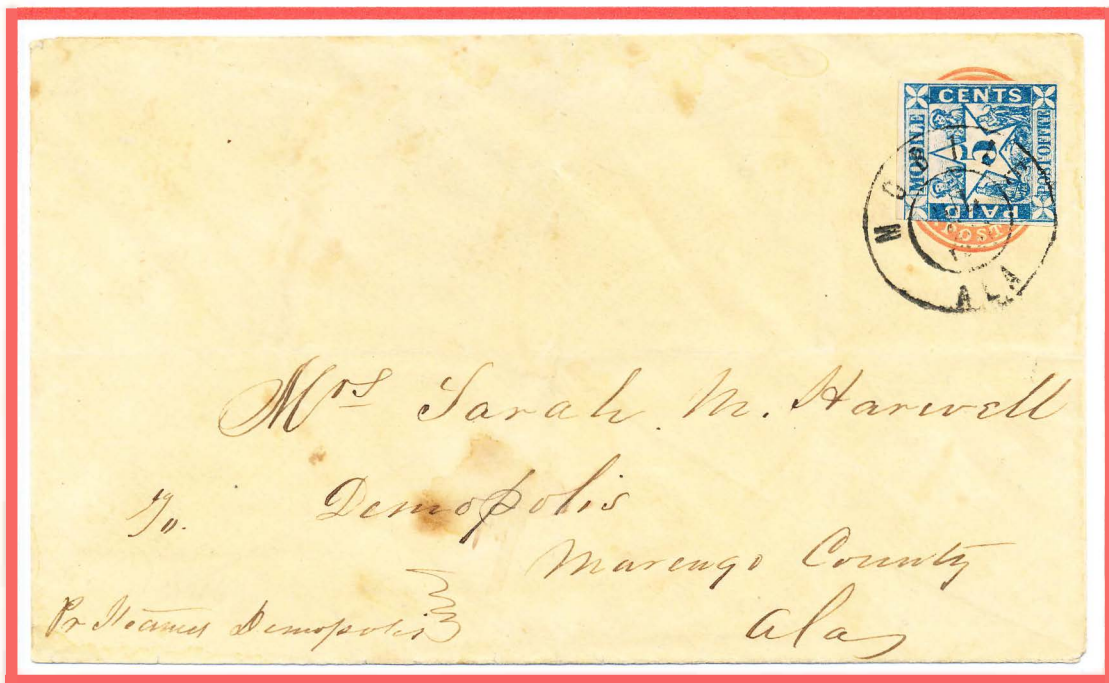 CENTS
MOBILE
5
POST OFFICE
PAID
MOBILE
ALA
Mrs Sarah M. Harwell
To. Demopolis
Marengo County
Ala
Pr Steamer Demopolis